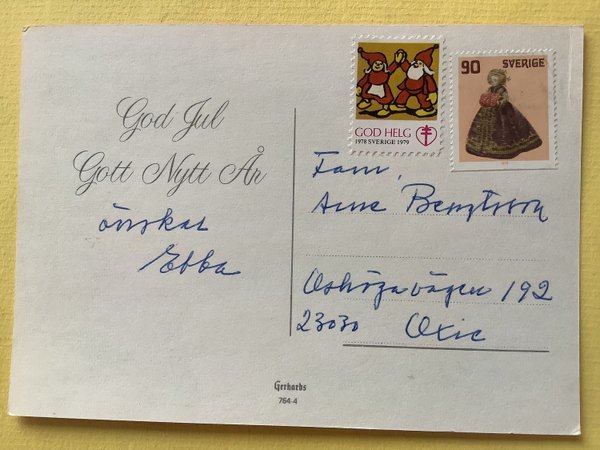 God Jul
Gott Nytt År
önskar
Ebba
GOD HELG
1978 SVERIGE 1979
90 SVERIGE
Fam.
Arne Bengtsson
192
23030 Oxie
Gerhards
764-4